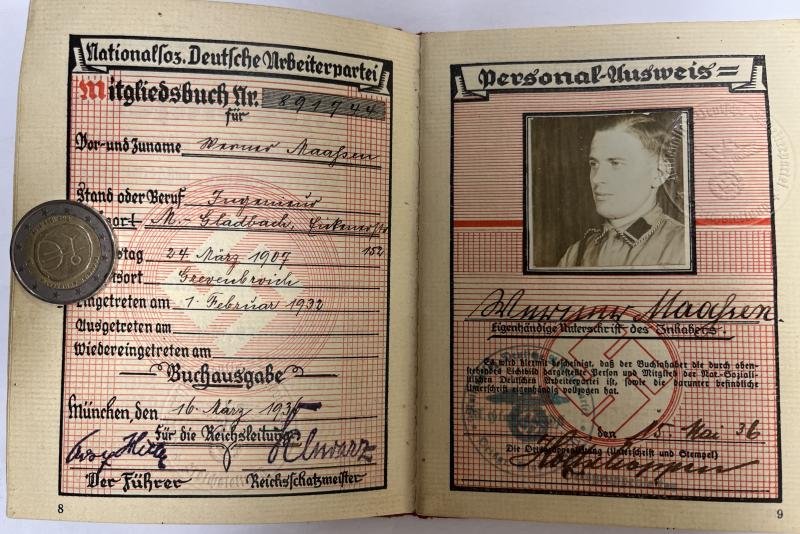 Nationalsoz. Deutsche Arbeiterpartei
Mitgliedsbuch Nr. 891744
für
Vor- und Zuname Werner Maassen
Stand oder Beruf Ingenieur
ort M.-Gladbach, Eickenerstr
152
tag 24 März 1907
ort Grevenbroich
Eingetreten am 1. Februar 1932
Ausgetreten am
Wiedereingetreten am
Buchausgabe
München, den 16. März 193
für die Reichsleitung
Der Führer Reichsschatzmeister
8
Personal-Ausweis
Werner Maassen.
Eigenhändige Unterschrift des Inhabers.
Es wird hiermit bescheinigt, daß der Buchinhaber die durch oben-
stehendes Lichtbild dargestellte Person und Mitglied der Nat.-Soziali-
stischen Deutschen Arbeiterpartei ist, sowie die darunter befindliche
Unterschrift eigenhändig vollzogen hat.
den 15. Mai 36
Die (Unterschrift und Stempel)
9